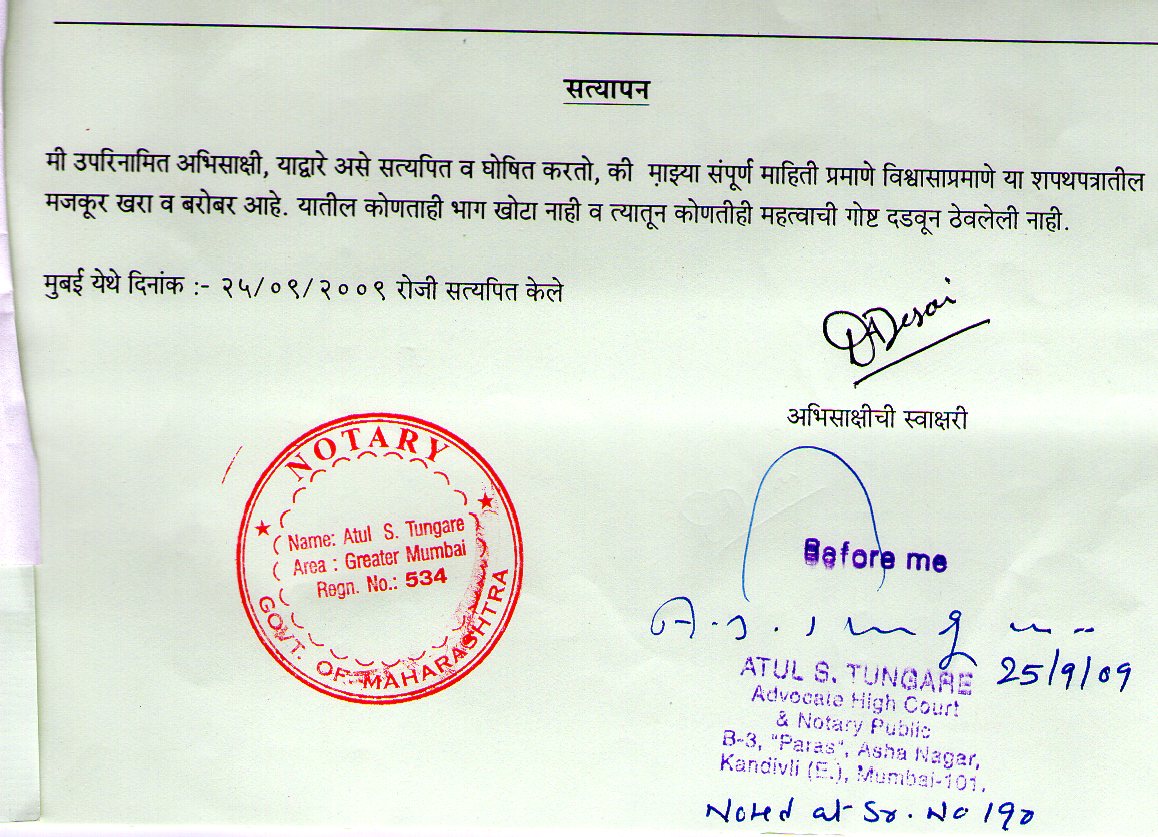 सत्यापन
मी उपरिनामित अभिसाक्षी, याद्वारे असे सत्यपित व घोषित करतो, की माझ्या संपूर्ण माहिती प्रमाणे विश्वासाप्रमाणे या शपथपत्रातील
मजकूर खरा व बरोबर आहे. यातील कोणताही भाग खोटा नाही व त्यातून कोणतीही महत्वाची गोष्ट दडवून ठेवलेली नाही.
मुबई येथे दिनांक :- २५/०९/२००९ रोजी सत्यपित केले
Desai
अभिसाक्षीची स्वाक्षरी
NOTARY
Name: Atul S. Tungare
Area : Greater Mumbai
Regn. No.: 534
GOVT. OF MAHARASHTRA
Before me
25/9/09
ATUL S. TUNGARE
Advocate High Court
& Notary Public
B-3, "Paras", Asha Nagar,
Kandivli (E.), Mumbai-101.
Noted at Sr. No 190